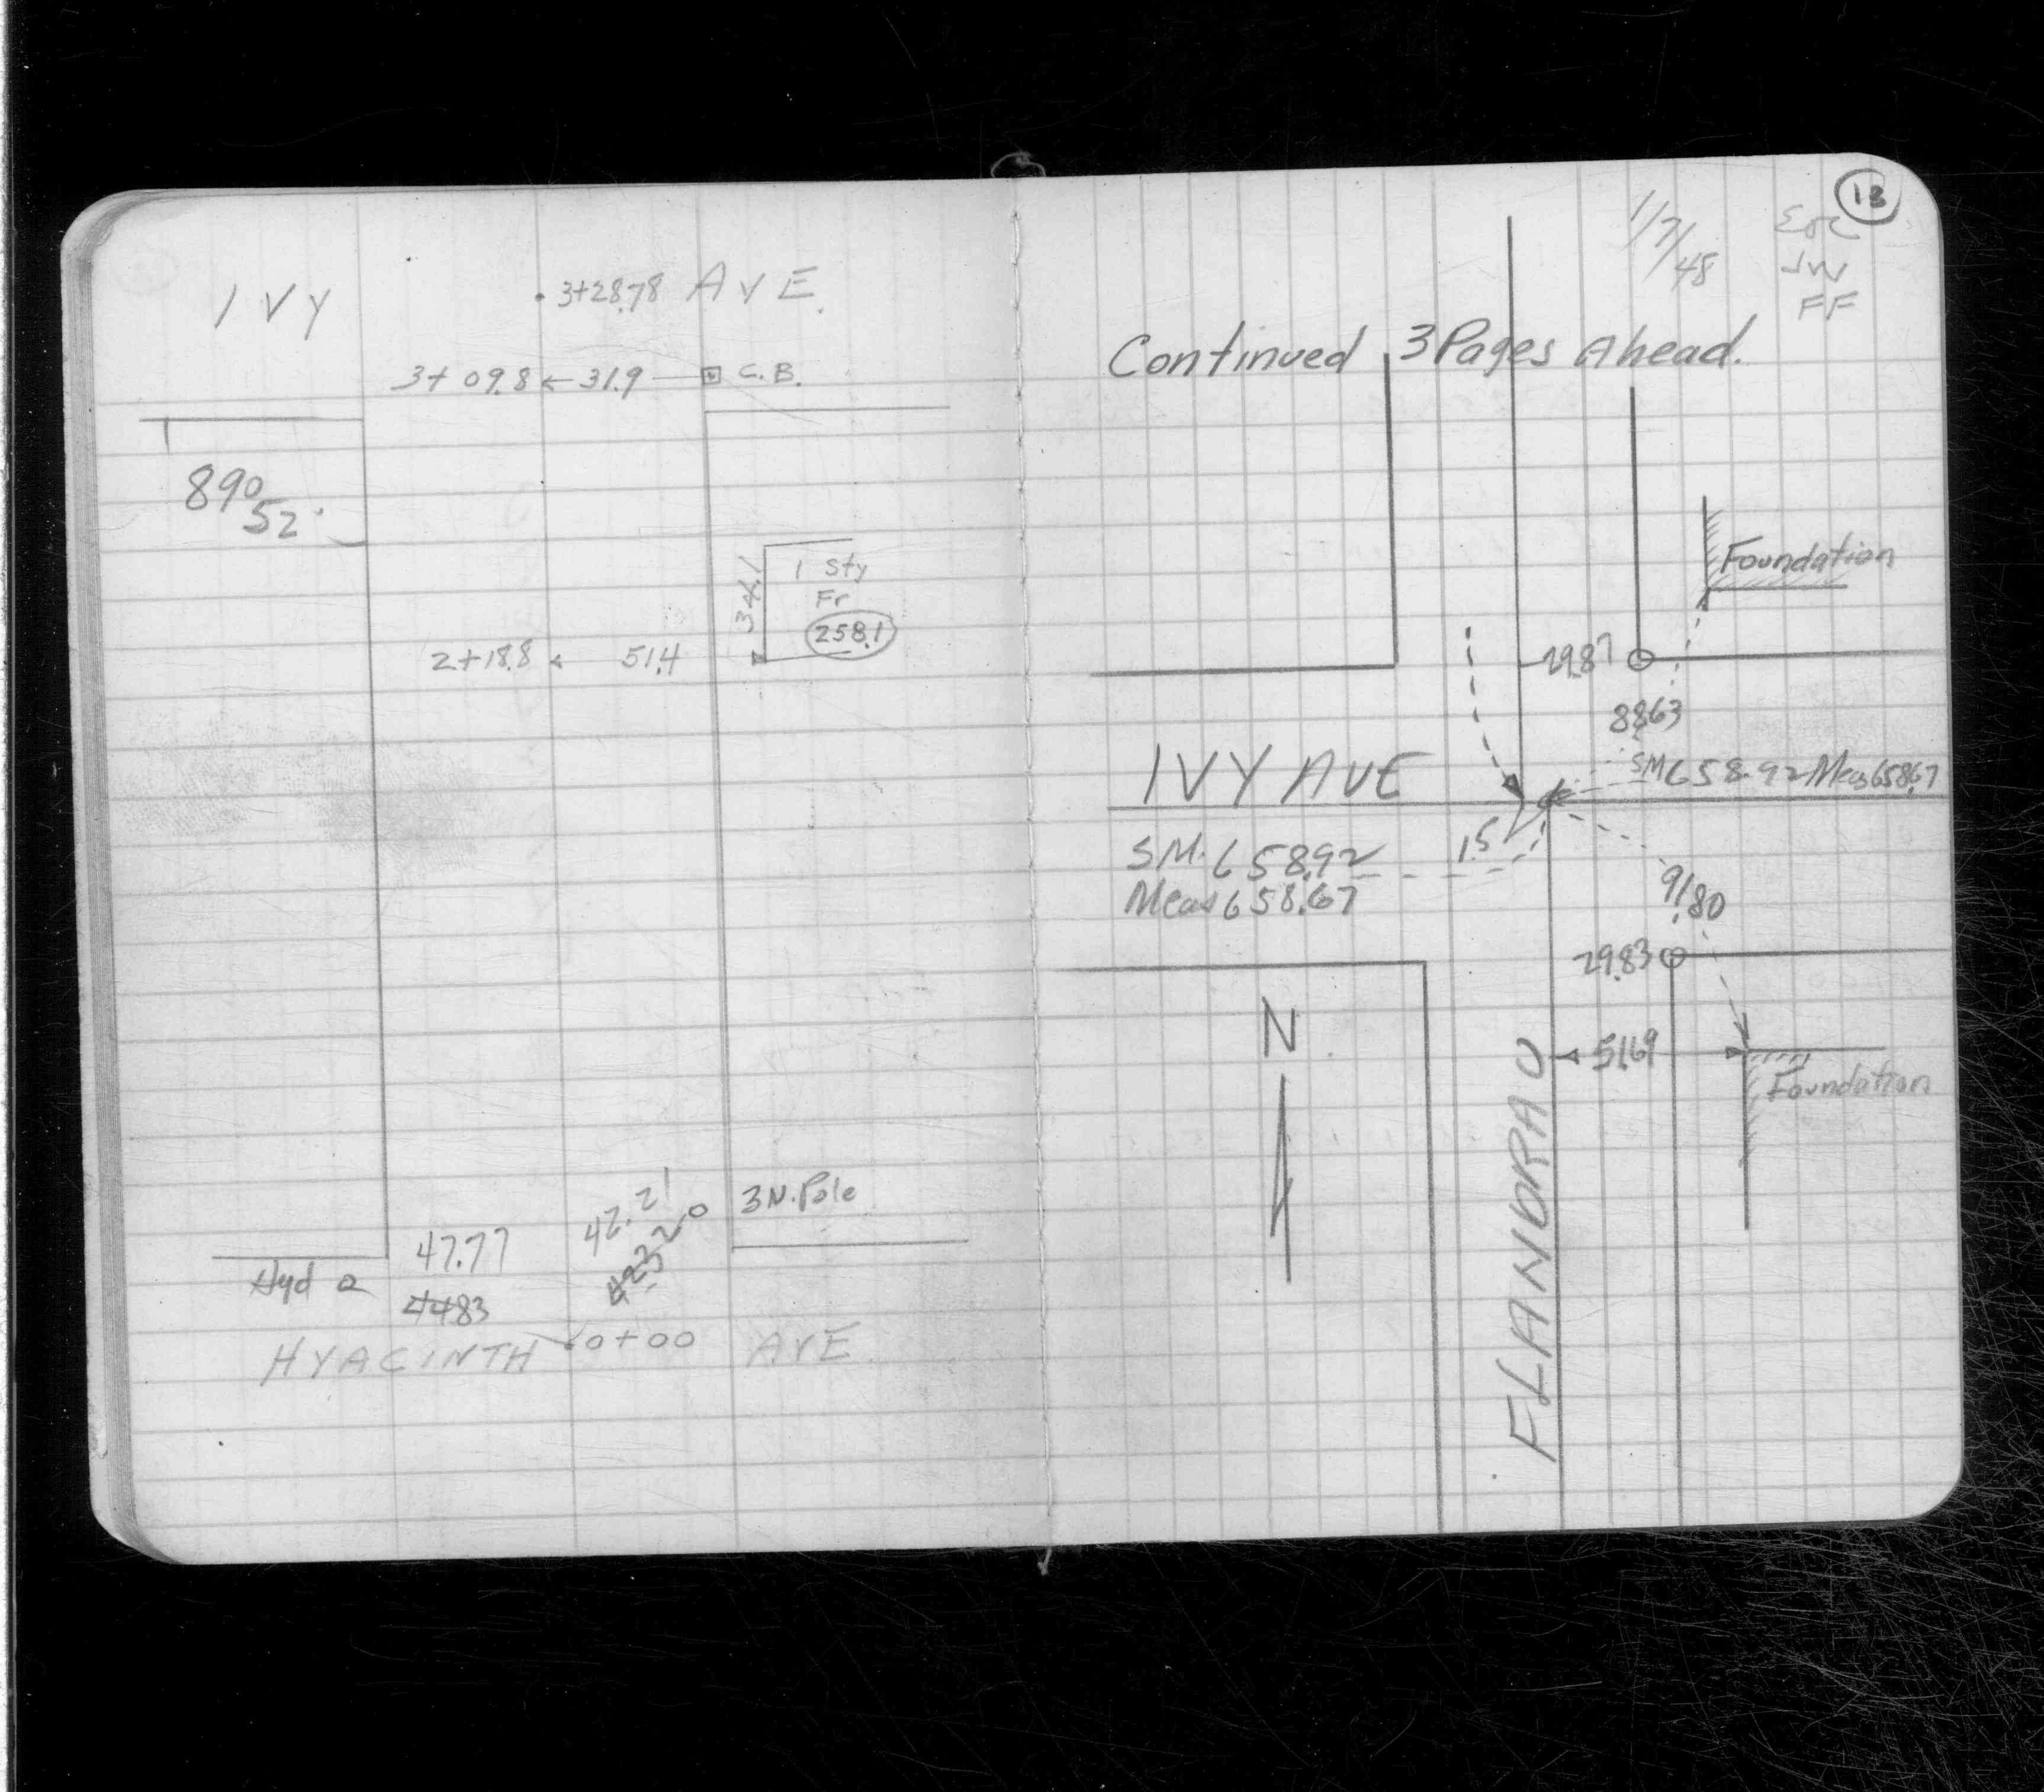 IVY .3+28.78 AVE.
3+09.8 ← 31.9 C.B.
89° 52'
34.1
1 Sty
Fr
258.1
2+18.8 51.4
42.21
3 N. Pole
47.77
42.32
Hyd
44.83
HYACINTH 0+00 AVE.
13
1/7/48
JW
FF
Continued 3 Pages Ahead.
Foundation
29.87
88.63
IVY AVE
SM 658.92 Meas 658.67
1.5
SM. 658.92
Meas 658.67
91.80
29.83
N
51.69
Foundation
FLANDRAU